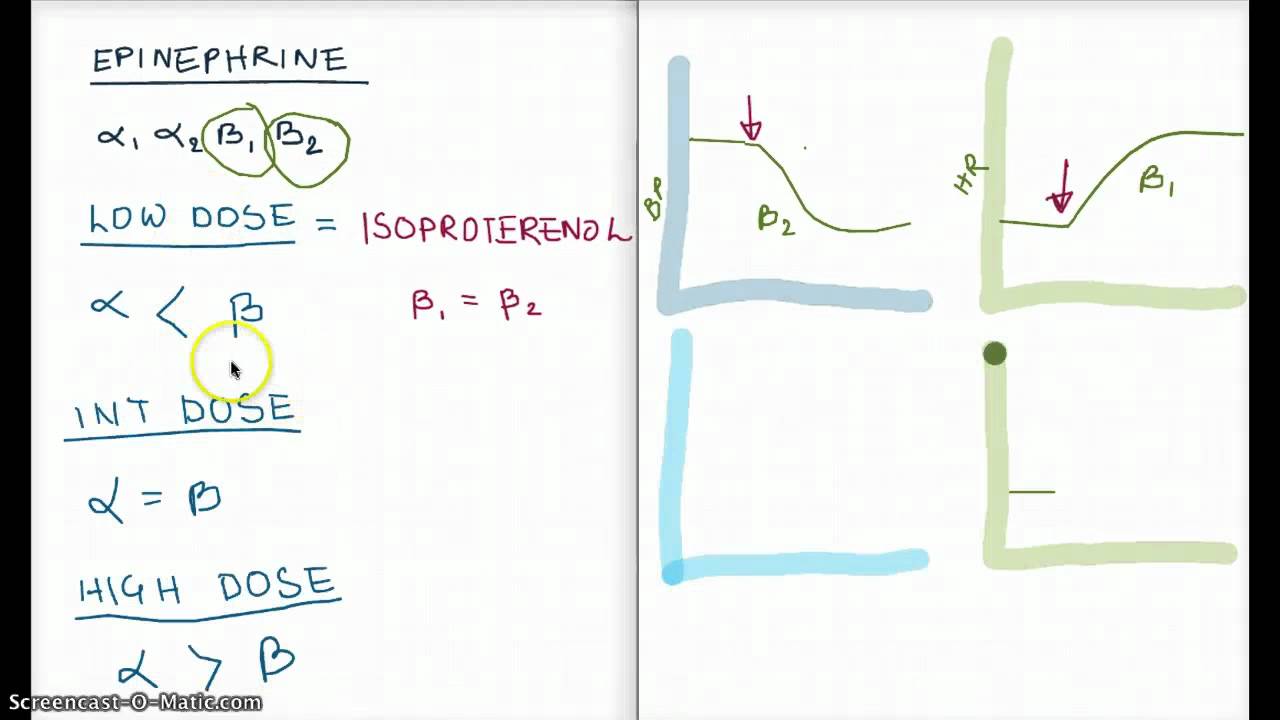 EPINEPHRINE
α₁ α₂ β₁ β₂
LOW DOSE = ISOPROTERENOL
α < β
β₁ = β₂
INT DOSE
α = β
HIGH DOSE
α > β
BP
β₂
HR
β₁
Screencast-O-Matic.com